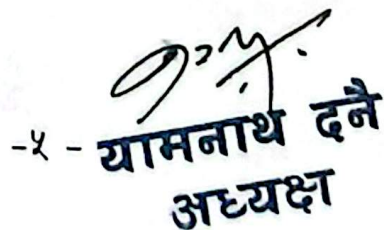 -५-
यामनाथ दनै
अध्यक्ष